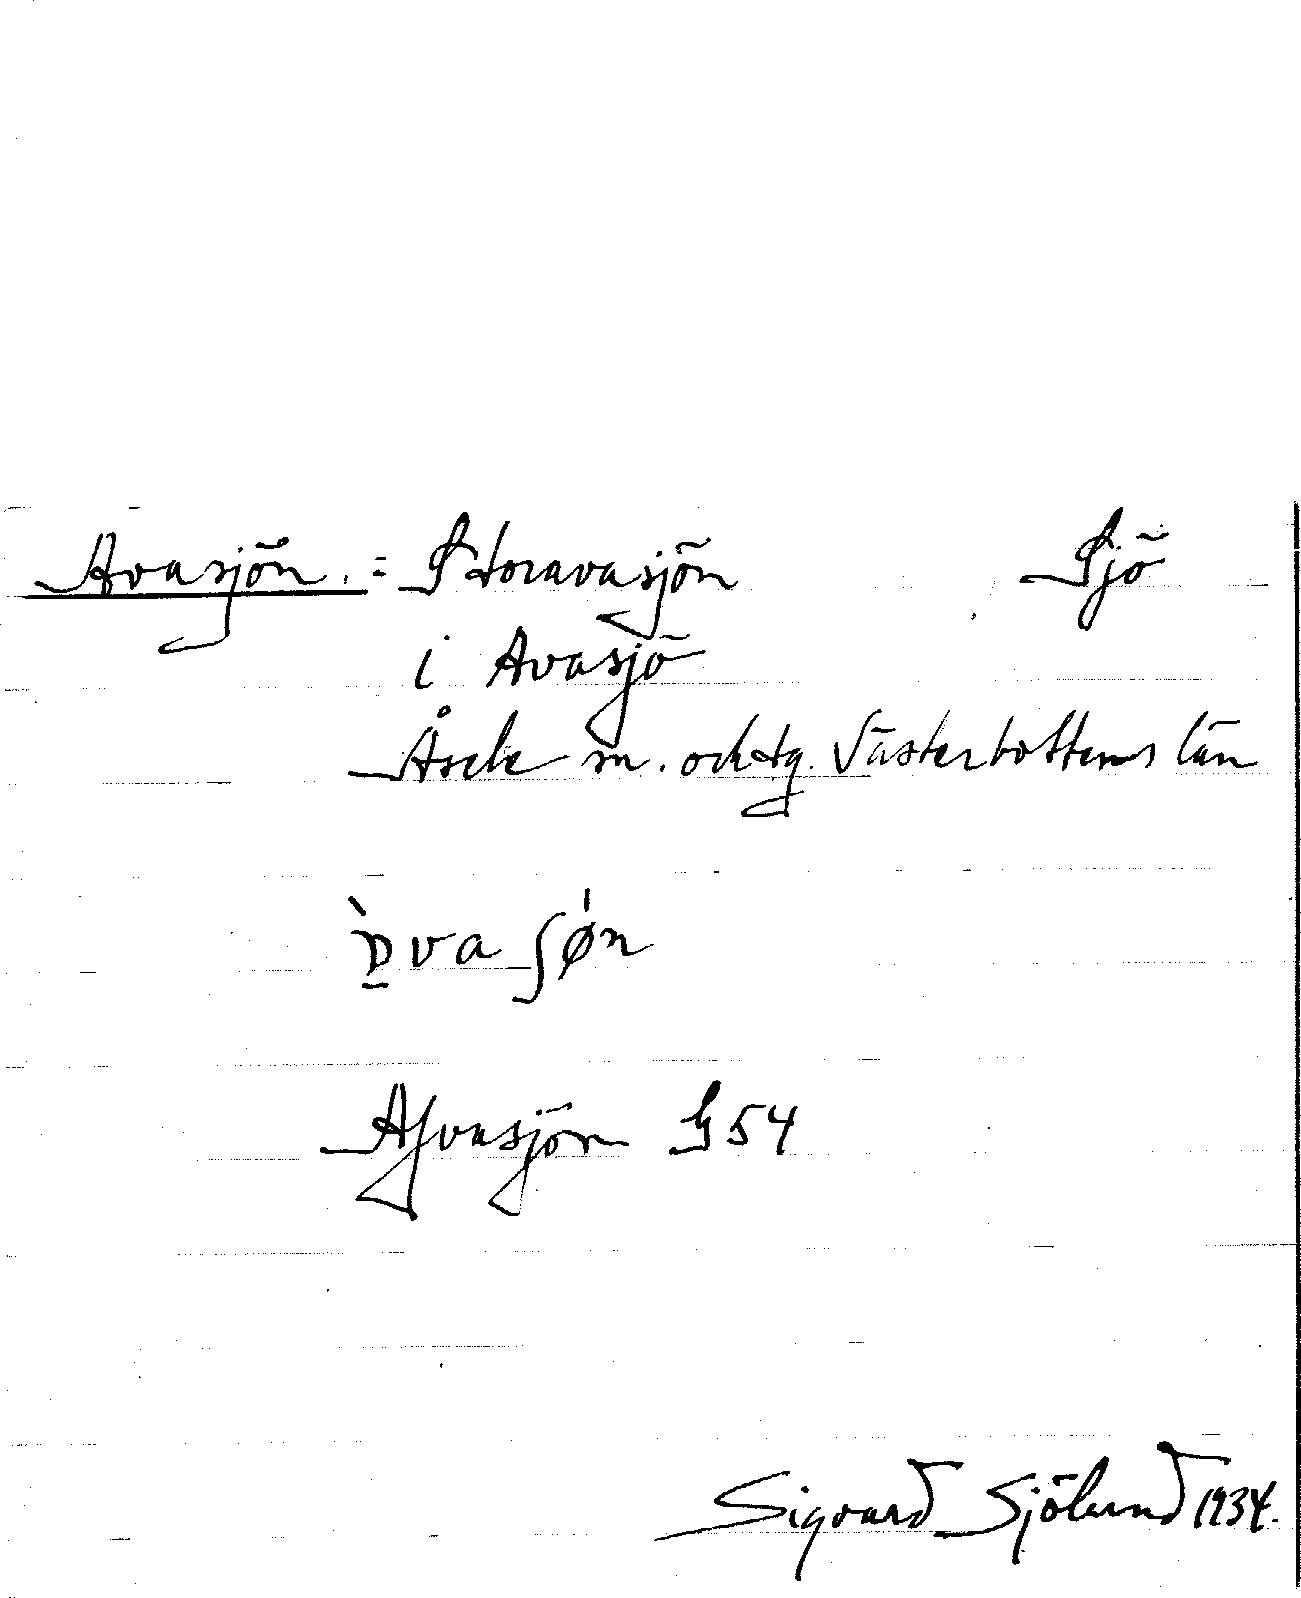 Avasjön. = Storavasjön Sjö
i Avasjö
Åsele sn. och tg. Västerbottens län
va ʃøn
Afvasjön G 54
Sigvard Sjölund 1934.